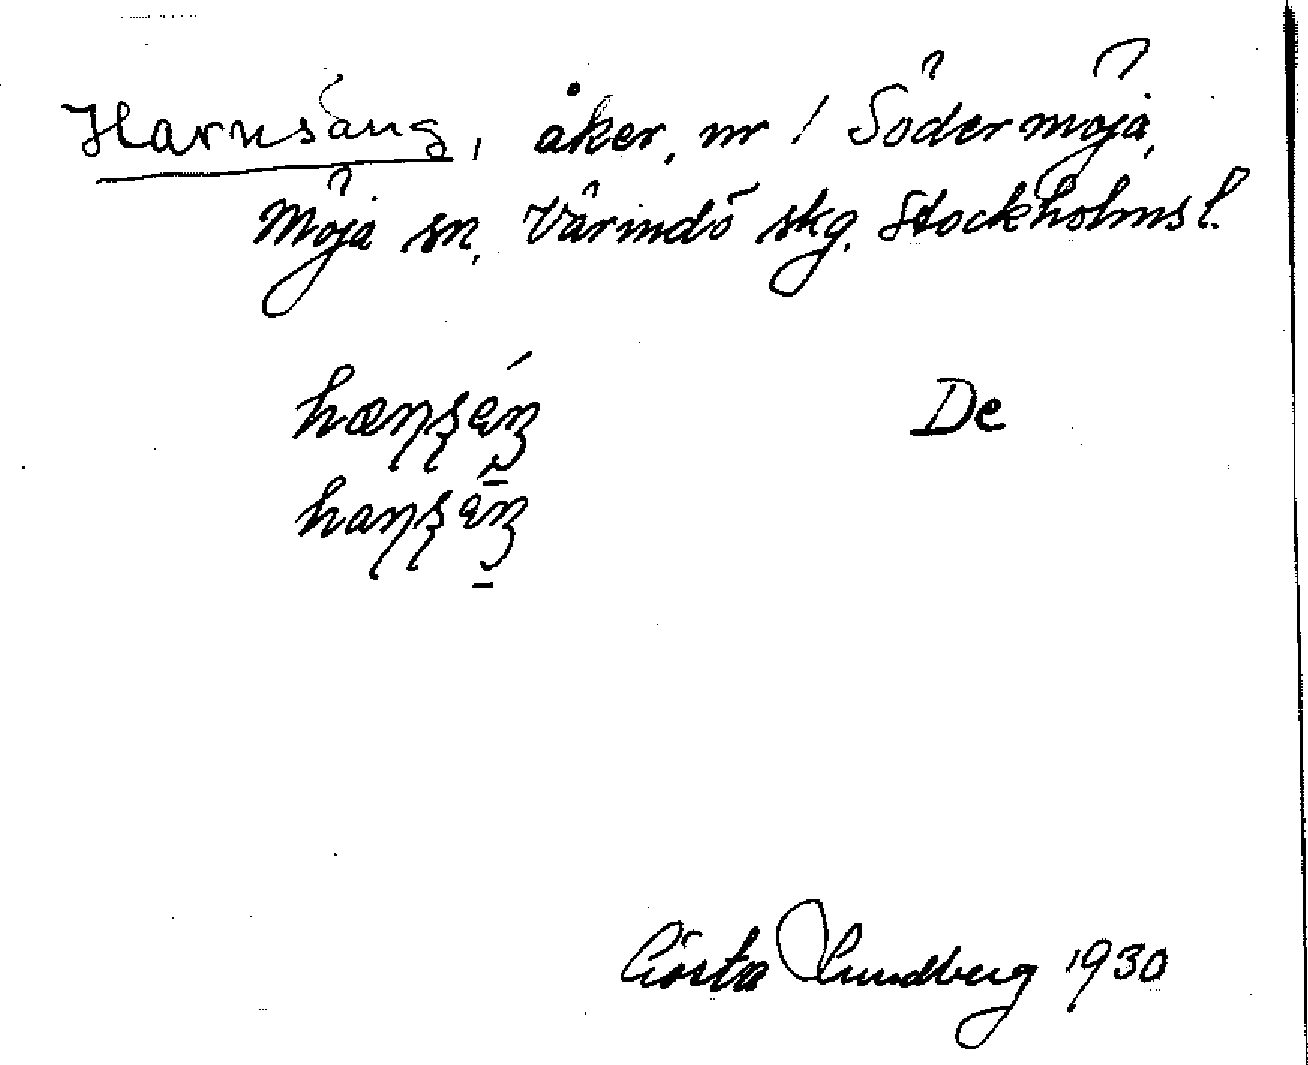 Harnsäng, åker, nr 1 Södermöja,
Möja sn, Värmdö skg. Stockholms l.
hæṇṣäŋ De
haṇṣäŋ
Gösta Lundberg 1930